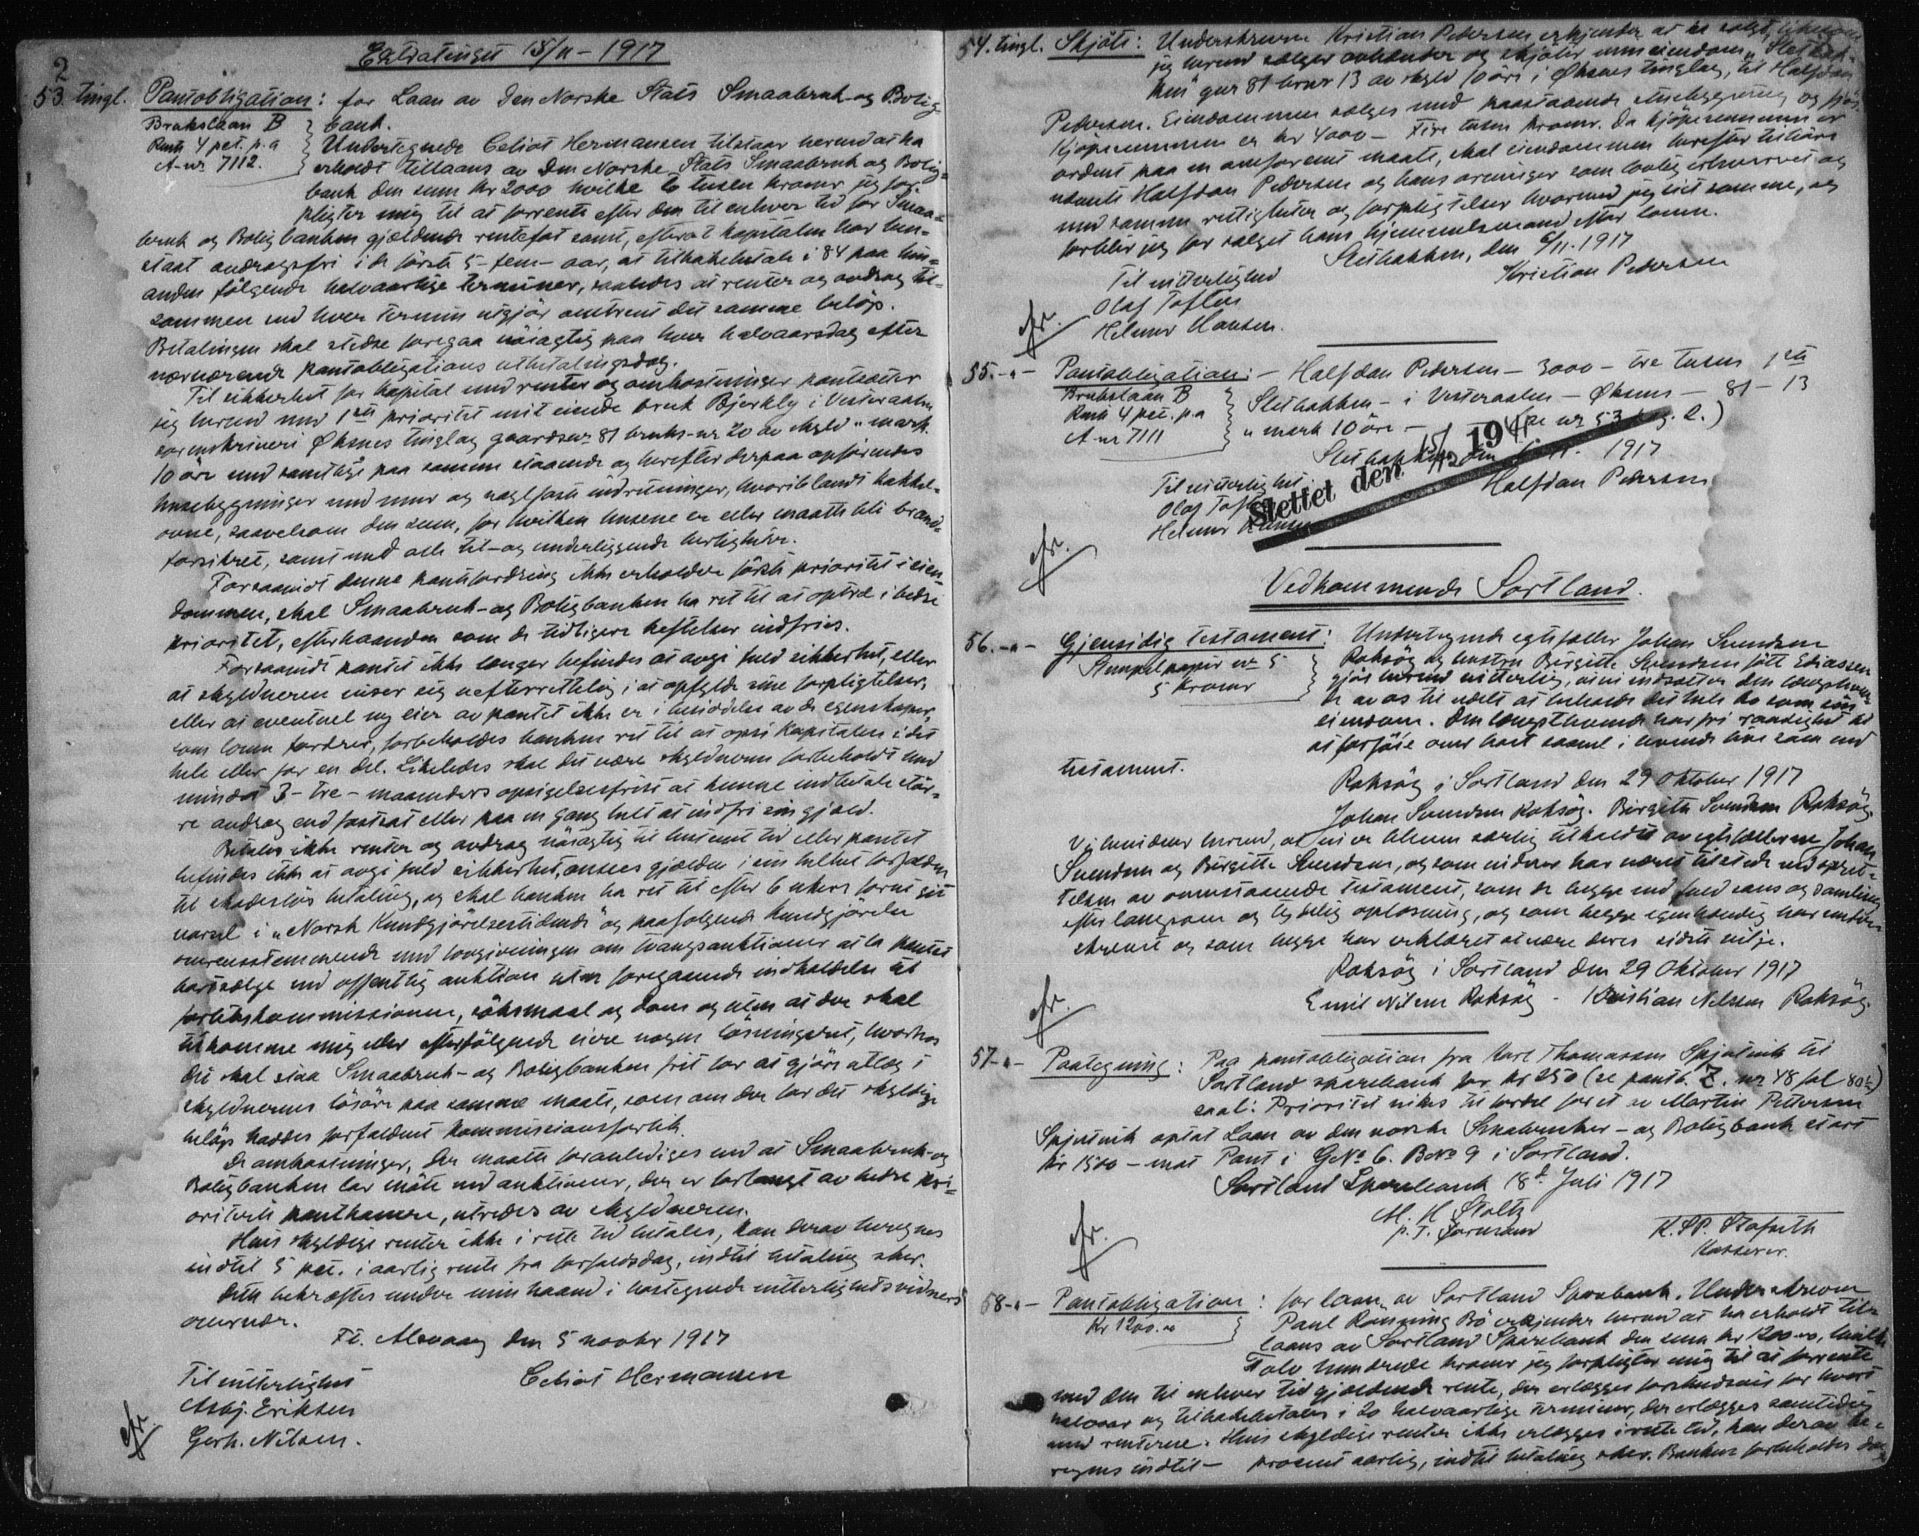 2
Extratinget 15/11 - 1917
53. tingl. Pantobligation: for Laan av Den Norske Stats Smaabruk- og Bolig-
bank.
Brukslaan B
Rente 4 pct. p.a
A-nr 7112.
Undertegnede Celius Hermansen tilstaar herved at ha
erholdt tillaans av Den Norske Stats Smaabruk og Bolig-
bank den sum kr 2000 hvilke to tusen kroner jeg for-
pligter mig til at forrente efter den til enhver tid for Smaa-
bruk og Boligbanken gjældende rentefot samt, efterat kapitalen har hen-
staat avdragsfri i de første 5 - fem - aar, at tilbakebetale i 84 paa hin-
anden følgende halvaarlige terminer, saaledes at renter og avdrag til-
sammen ved hver termin utgjør omtrent det samme beløp.
Betalingen skal stedse foregaa nøiagtig paa hver halvaarsdag efter
nærværende pantobligations utbetalingsdag.
Til sikkerhet for kapital med renter og omkostninger pantsætter
jeg herved med 1ste prioritet mit eiende bruk Bjerkly i Vesteraalen
sorenskriveri Øksnes tinglag gaardsnr 81 bruks-nr 20 av skyld " mark
10 øre med samtlige paa samme staaende og herefter derpaa opførendes
husebygninger med mur og naglfaste indretninger, hvoriblandt kakkel-
ovne, saavelsom den sum, for hvilken husene er eller maatte bli brand-
forsikret, samt med alle til- og underliggende herligheter.
Forsaavidt denne pantfordring ikke erholder første prioritet i eien-
dommen, skal Smaabruk- og Boligbanken ha ret til at optræ i bedre
prioritet, efterhaanden som de tidligere heftelser indfries.
Forsaavidt pantet ikke længer befindes at avgi fuld sikkerhet, eller
at skyldneren viser sig uefterrettelig i at opfylde sine forpligtelser,
eller at eventuel ny eier av pantet ikke er i besiddelse av de egenskaper,
som loven fordrer, forbeholdes banken ret til at opsi kapitalen i det
hele eller for en del. Likeledes skal det være skyldneren forbeholdt med
mindst 3 - tre - maaneders opsigelsesfrist at kunne indbetale stør-
re avdrag end fastsat eller paa en gang helt at indfri sin gjæld.
Betales ikke renter og avdrag nøiagtig til bestemt tid eller pantet
befindes ikke at avgi fuld sikkerhet, ansees gjælden i sin helhet forfalden
til skadesløs betaling, og skal banken ha ret til efter 6 ukers forut git
varsel i "Norsk Kundgjørelsestidende" og paafølgende kundgjørelse
overensstemmende med lovgivningen om tvangsauktioner at la pantet
bortsælge ved offentlig auktion uten foregaaende indkaldelse til
forlikskommissionen, søksmaal og dom og uten at der skal
tilkomme mig eller efterfølgende eiere nogen løsningsret, hvorhos
det skal staa Smaabruk- og Boligbanken frit for at gjøre utlæg i
skyldnerens løsøre paa samme maate, som om der for det skyldige
beløp haddes forfaldent kommissionsforlik.
De omkostninger, der maatte foranlediges ved at Smaabruk- og
Boligbanken lar møte ved auktioner, der er forlangt av bedre pri-
oriterte panthavere, utredes av skyldneren.
Hvis skyldige renter ikke i rette tid betales, kan derav beregnes
indtil 5 pct. i aarlig rente fra forfaldsdag, indtil betaling sker.
Dette bekræftes under min haand i hostegnede vitterlighetsvidners
overvær.
Alsvaag den 5 novbr 1917
Celius Hermansen
Til vitterlighet
Asbj. Eriksen
Gerh. Nilsen.
54. tingl. Skjøte: Underskrevne Kristian Pedersen erkjender at ha solgt, likesom
jeg herved sælger avhænder og skjøter min eiendom "Sletbak-
ken" gnr 81 brnr 13 av skyld 10 øre i Øksnes tinglag, til Halfdan
Pedersen. Eiendommen sælges med paastaaende husebygning og fjøs
Kjøpesummen er kr 4000 - Fire tusen kroner. Da kjøpesummen er
ordent paa en omforent maate, skal eiendommen herefter tilhøre
nævnte Halfdan Pedersen og hans arvinger som lovlig erhvervet og
med samme rettigheter og forpligtelser hvormed jeg eiet samme, og
forblir jeg for salget hans hjemmelsmand efter loven.
Sletbakken, den 6/11. 1917
Kristian Pedersen
Til vitterlighed
Olaf Toften
Helmer Hansen.
55. -"- Pantobligation: - Halfdan Pedersen - 3000 - tre tusen 1ste
Brukslaan B
Rente 4 pct. p.a
A-nr 7111
Sletbakken - i Vesteraalen - Øksnes - 81 - 13
" mark 10 øre - (se nr 53 pag. 2.)
Sletbakken den 6/11. 1917
Halfdan Pedersen
Til vitterlighet
Olaf Toften
Helmer Hansen
Slettet den 15/12 194
Vedkommende Sortland.
56. -"- Gjensidig testament: Undertegnede egtefæller Johan Svendsen
Stempelpapir nr 5
5 Kroner
Roksøy og hustru Birgitte Svendsen født Ediassen
gjør herved vitterlig, at vi indsætter den længstlevende
av os til udelt at beholde det hele bo som sin
eiendom. Den længstlevende har fri raadighet til
at forføie over boet saavel i levende live som ved
testament.
Roksøy i Sortland den 29 Oktober 1917
Johan Svendsen Roksøy. Birgitte Svendsen Roksøy
Vi bevidner herved, at vi er blevne særlig tilkaldt av egtefællerne Johan
Svendsen og Birgitte Svendsen, og som vidner har været tilstede ved opret-
telsen av ovenstaaende testament, som de begge ved fuld sans og samling
efter langsom og tydelig oplæsning, og som begge egenhændig har under-
skrevet og som begge har erklæret at være deres sidste vilje.
Roksøy i Sortland den 29 Oktober 1917
Emil Nilsen Roksøy - Kristian Nelssen Roksøy.
57. -"- Paategning: Paa pantobligation fra Karl Thomassen Spjutvik til
Sortland sparebank for kr 250 (se pantb. Z. nr 48 fol 80)
saal: Prioritet vikes til fordel for et av Martin Pettersen
Spjutvik optat Laan av den norske Smabruker- og Boligbank stort
Kr 1500 - mot Pant i GNo 6. BNo 9 i Sortland.
Sortland Sparebank 18d Juli 1917
M. H. Stoltz
p. t. Formand
Kasserer.
58. -"- Pantobligation: for laan av Sortland Sparebank. Underskrevne
Kr 1200.00
Paul Rønning Bø erkjender herved at ha erholdt til-
laans av Sortland Sparebank den sum kr 1200.00, hvilke
Tolv hundrede kroner jeg forpligter mig til at forrente
med den til enhver tid gjældende rente, der erlægges forskudsvis for hvert
halvaar og tilbakebetales i 20 halvaarlige terminer, der erlægges samtidig
med renterne. Hvis skyldige renter ikke erlægges i rette tid, kan derav be-
regnes indtil - prosent aarlig, indtil betaling sker. Banken forbeholdes den